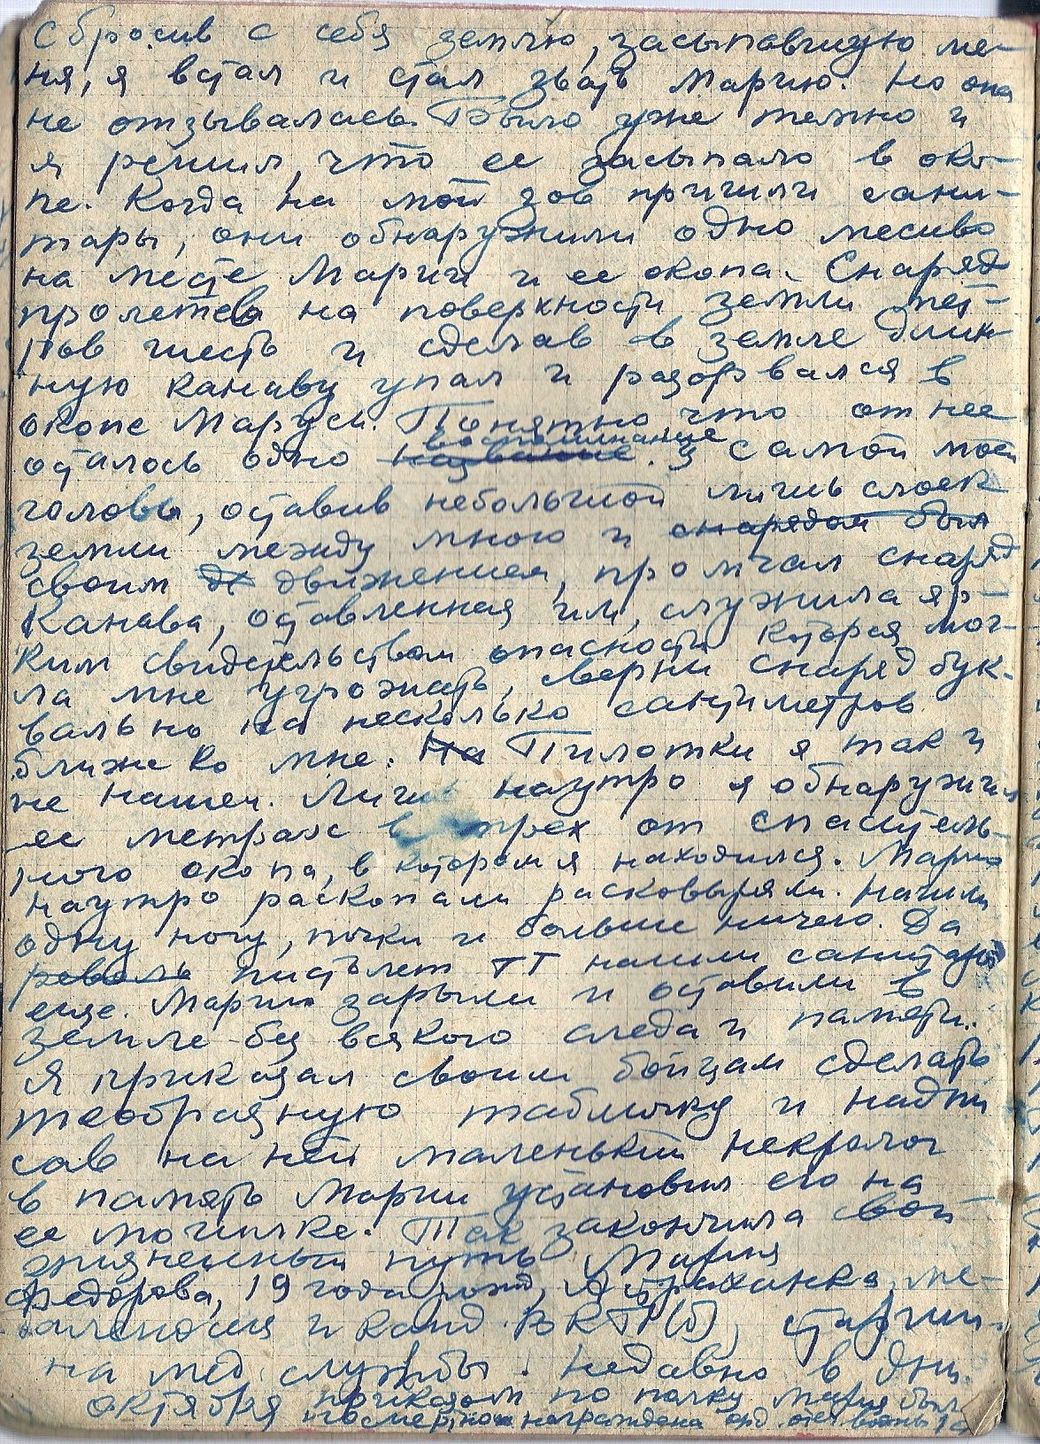 сбросив с себя землю, засыпавшую ме-
ня, я встал и стал звать Марию. Но она
не отзывалась. Было уже темно и
я решил, что ее засыпало в око-
пе. Когда на мой зов пришли сани-
тары, они обнаружили одно месиво
на месте Марии и ее окопа. Снаряд
пролетев на поверхности земли мет-
ров шесть и сделав в земле длин
ную канаву упал и разорвался в
окопе Маруси. Понятно что от нее
осталось одно название воспоминание. У самой моей
головы, оставив небольшой лишь слоек
земли между мною и снарядом был
своим дв движением, промчал снаряд
Канава, оставленная им, служила яр-
ким свидетельством опасности которая мог-
ла мне угрожать, сверни снаряд бук-
вально на несколько сантиметров
ближе ко мне. На Пилотки я так и
не нашел. Лишь наутро я обнаружил
ее метрах в трех от спаситель-
ного окопа, в котором я находился. Марию
наутро раскопали расковыряли. Нашли
одну ногу, почки и больше ничего. Да
револь пистолет ТТ нашли санитары
еще. Марию зарыли и оставили в
земле без всякого следа и памяти.
Я приказал своим бойцам сделать
тообразную табличку и надпи
сав на ней маленький некролог
в память Марии установил его на
ее могилке. Так закончила свой
жизненный путь Мария
Федорова, 19 года рожд, Астраханка,
и канд. ВКП(б), старши-
на мед. службы. Недавно в дни
октября приказом по полку Мария был
посмертно награждена орд. отеч войны 1й